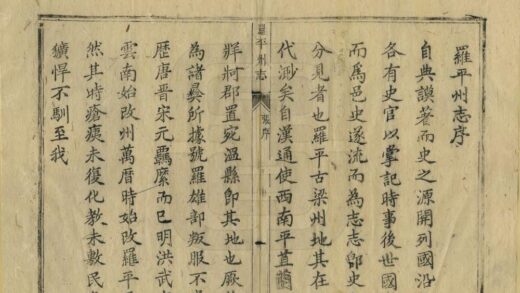 羅平州志序
自典謨著而史之源開列國沿
各有史官以掌記時事後世國
而爲邑史遂流而為志志即史
分見者也羅平古梁州地其在
代渺矣自漢通使西南平且蘭
羅平州志
序
牂牁郡置宛温縣即其地也厥
為諸㸑所據號羅雄部叛服不
歴唐晋宋元羈縻而已明洪武
雲南始改州萬曆時始改羅平
然其時瘡痍未復化教未敷民
獷悍不馴至我